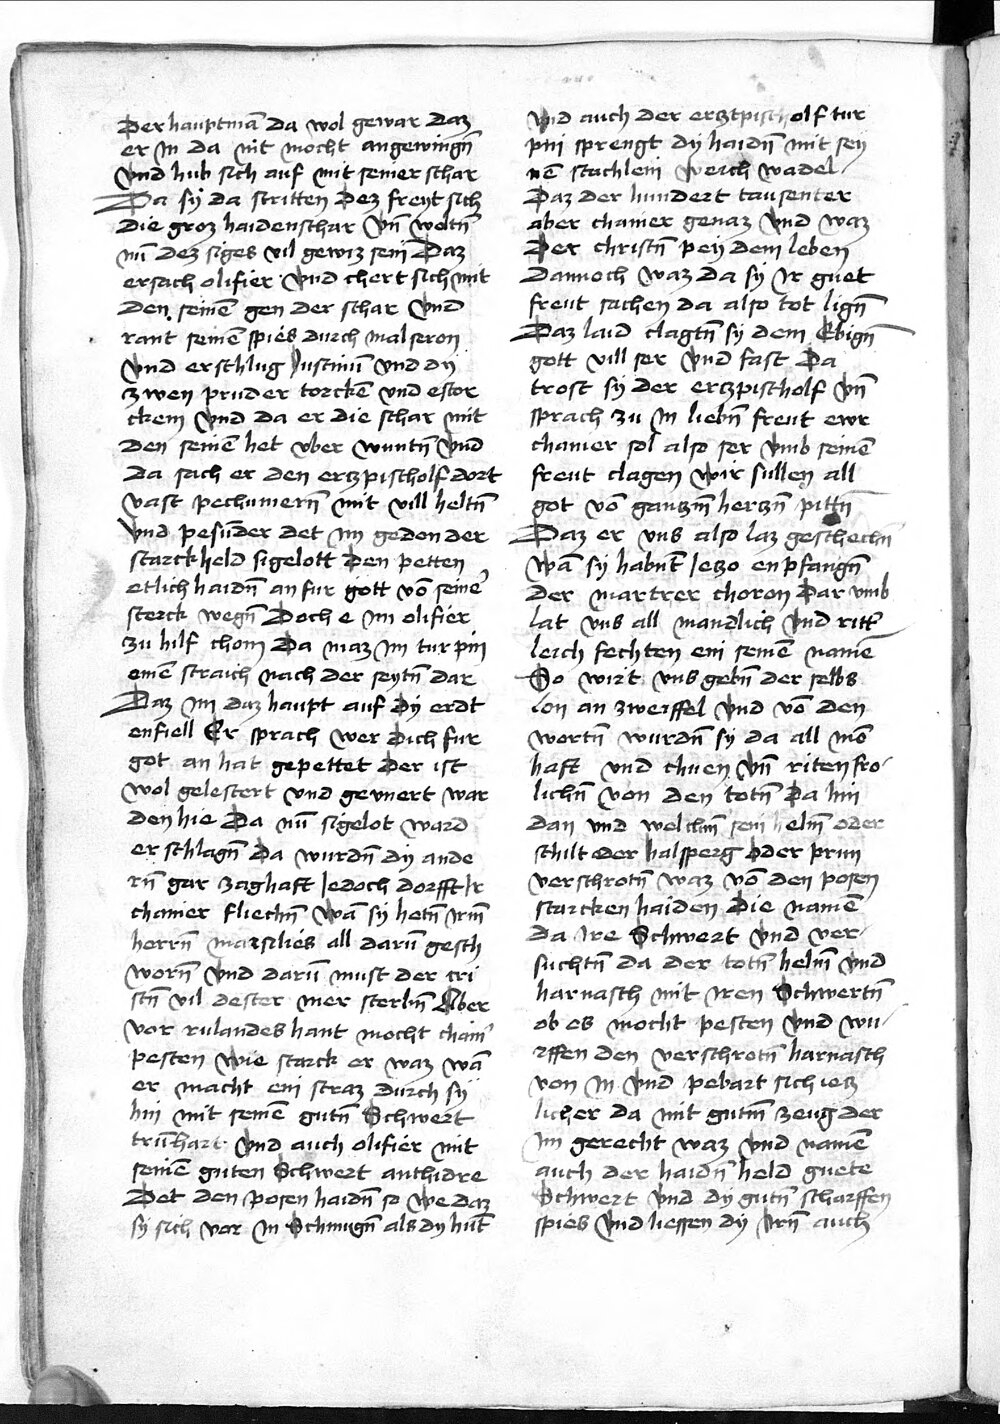 Der hauptmā da wol gewar daz
er jn da nit mocht angewingn̄
vnd hub sich auf mit seiner schar
Da sÿ da stritten Dez freyt sich
die groz haidenschar vn̄ weltn̄
nū dez siges vil gewiz sein Daz
ersach olifier vnd chert sich mit
den seinē gen der schar vnd
rant seinē spies durch malseron
vnd erschlug Justinū vnd dy
zwen pruder torckē vnd estor
ckem vnd da er die schar mit
den seinē het vber wuntn̄ vnd
da sach er den erczpischolf dort
vast pechumern̄ mit vill heltn̄
vnd pesūder det im gedon der
starck held sigelott Den petten
etlich haidn̄ an fur gott vō seiner
sterck wegn̄ Doch e im olifier
zu hilf chom Da maz im turpin
einē straich nach der seytn̄ dar
Daz im daz haupt auf dy erdt
enfiell Er sprach wer dich fur
got an hat gepettet Der ist
wol gelestert vnd gevnert war
den hie Da nū sigelot ward
erschlagn̄ Da wurdn̄ dy ande
rn̄ gar zaghaft Jedoch dorfft Ir
chainer fliechn̄ wā sy hetn̄ irm̄
herrn̄ marsilies all darū gesch
worn̄ vnd darū must der cri
stn̄ vil dester mer sterbn̄ Aber
vor rulandes hant mocht chain
pesten wie starck er waz wā
er macht ein straz durch sÿ
hin mit seinē gutn̄ Schwert
trūhart vnd auch olifier mit
seinē guten Schwert anthidre
Det den posen haidn̄ so we daz
sy sich var jn Schmugn̄ als dy hūt
vnd auch der erczpischolf tur
pin sprengt dy haidn̄ mit sey
nē stachlein weich wadel
Daz der hundert tausenter
aber chainer genaz vnd waz
Der christn̄ pey dem leben
dannoch waz da sy Ir guet
freut sachen da also tot lign̄
Daz laid clagtn̄ sy dem Ebign̄
gott vill ser vnd fast Da
trost sy der erczpischolf vn̄
sprach zu jn liebn̄ freut ewr
chainer sol also ser vmb seinē
freut clagen wir sullen all
got vō ganczm̄ herczn̄ pittn̄
Daz er vns also laz geschechn̄
wā sy habnt Jeczo enpfangn̄
der martrer choron Dar vmb
lat vns all mandlich vnd ritter
leich fechten ein seinē namē
So wirt vns gebn̄ der selbs
lon an zweiffel vnd vō den
wortn̄ wurdn̄ sy da all mō
haft vnd chuen vn̄ riten fro
lichn̄ von den totn̄ Da hin
dan vnd welchm̄ sein helm̄ oder
schilt oder halsperg oder prun
verschrotn̄ waz vō den posen
starcken haiden Die namē
da Ire Schwert vnd ver
suchtn̄ da der totn̄ helm̄ vnd
harnasch mit iren Schwertn̄
ob es mocht pesten vnd wu
rffen den verschrotn̄ harnasch
von jn vnd pebart sich iecz
licher da mit gutm̄ zeug der
im gerecht waz vnd namē
auch der haidn̄ held guete
Schwert vnd dy gutn̄ scharffen
spies vnd liessen dy irn̄ auch